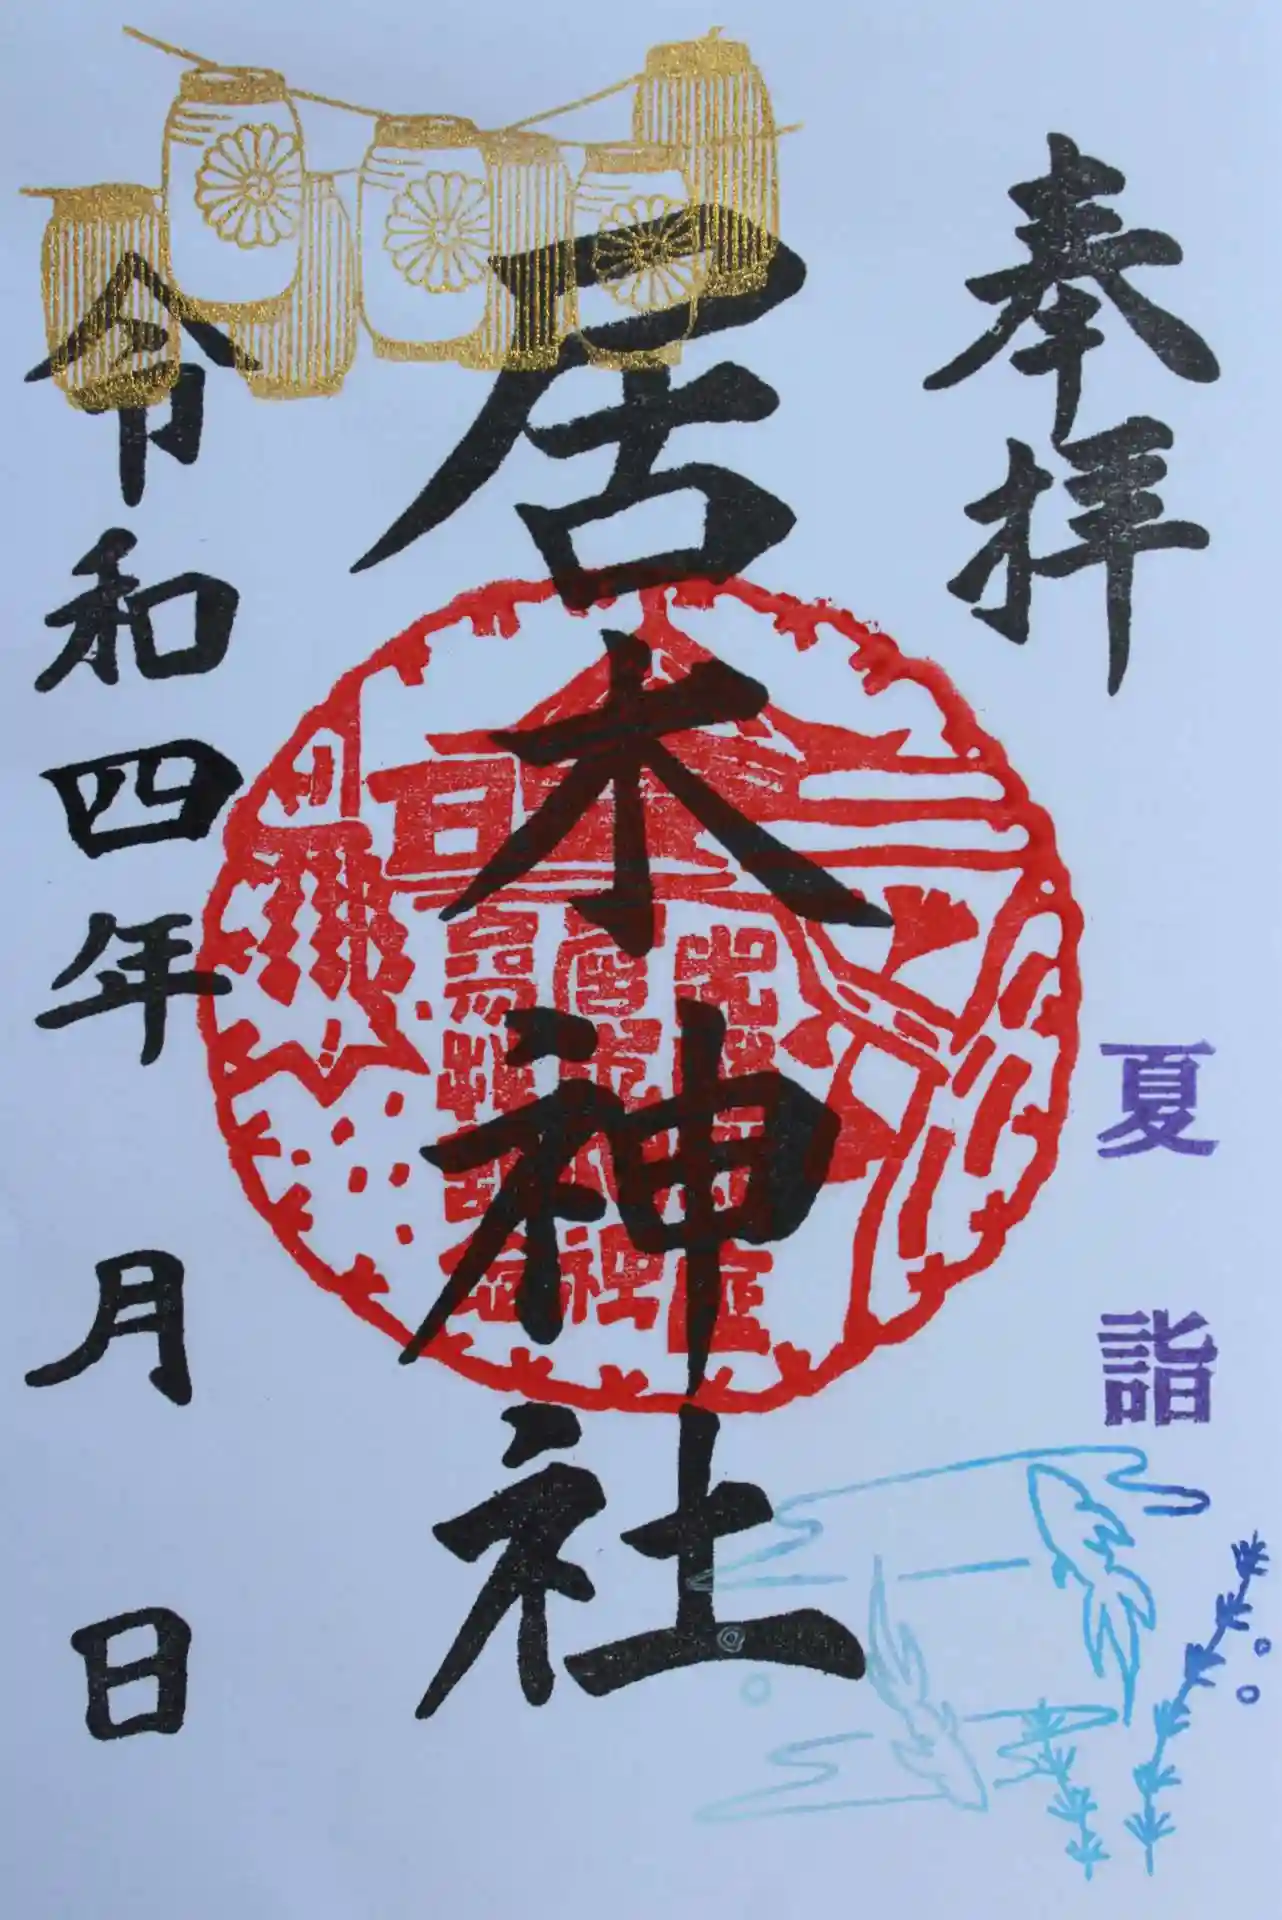 奉拝
夏詣
居木神社
令和四年 月 日